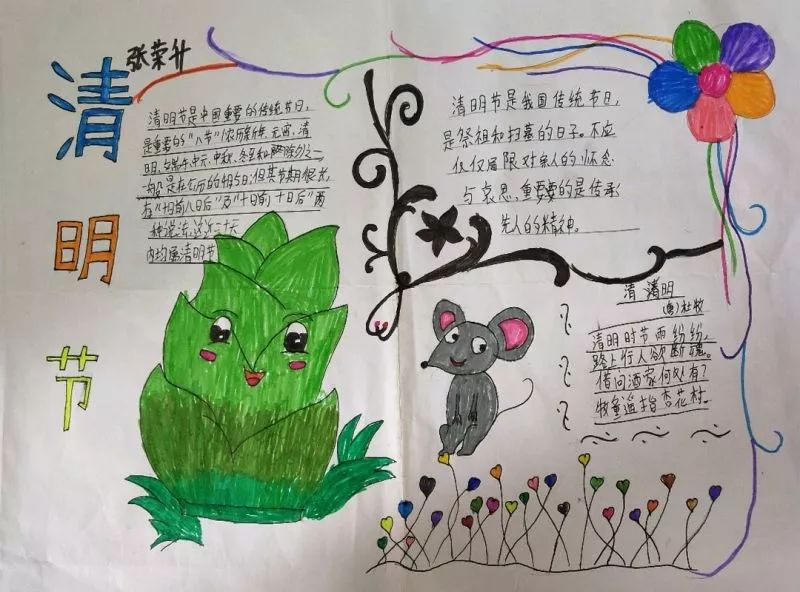 清明节
张荣升
清明节是中国重要的传统节日,
是重要的"八节"(
元宵,清
明,
中元,中秋,冬至和
除夕)之一
般是在
但其节期很长
有"十日前八日后"及"十日前十日后"两
种说法,这近二十天
内均属清明节
清明节是我国传统节日,
是祭祖和扫墓的日子。不应
仅仅局限对亲人的怀念
与哀思,重要的是传承
先人的精神。
清 清明
杜牧
清明时节雨纷纷,
路上行人欲断魂。
借问酒家何处有?
牧童遥指杏花村